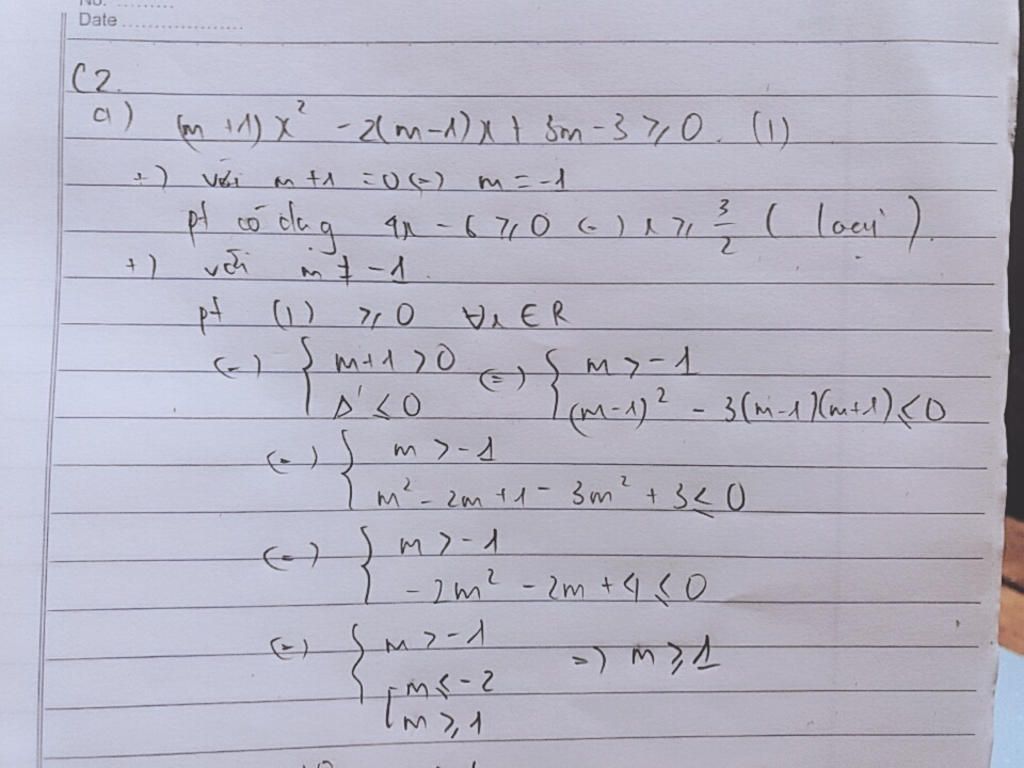 No. ..........
Date ......................
C2.
a) (m+1)x² - 2(m-1)x + 3m - 3 ≥ 0. (1)
+) với m+1 = 0 (=) m = -1
pt có dạng 4x - 6 ≥ 0 (=) x ≥ 3/2 (loại).
+) với m ≠ -1.
pt (1) ≥ 0 ∀x ∈ R
(=) { m+1 > 0 ; Δ' ≤ 0 (=) { m > -1 ; (m-1)² - 3(m-1)(m+1) ≤ 0
(=) { m > -1 ; m² - 2m + 1 - 3m² + 3 ≤ 0
(=) { m > -1 ; -2m² - 2m + 4 ≤ 0
(=) { m > -1 ; [ m ≤ -2 ; m ≥ 1 => m ≥ 1